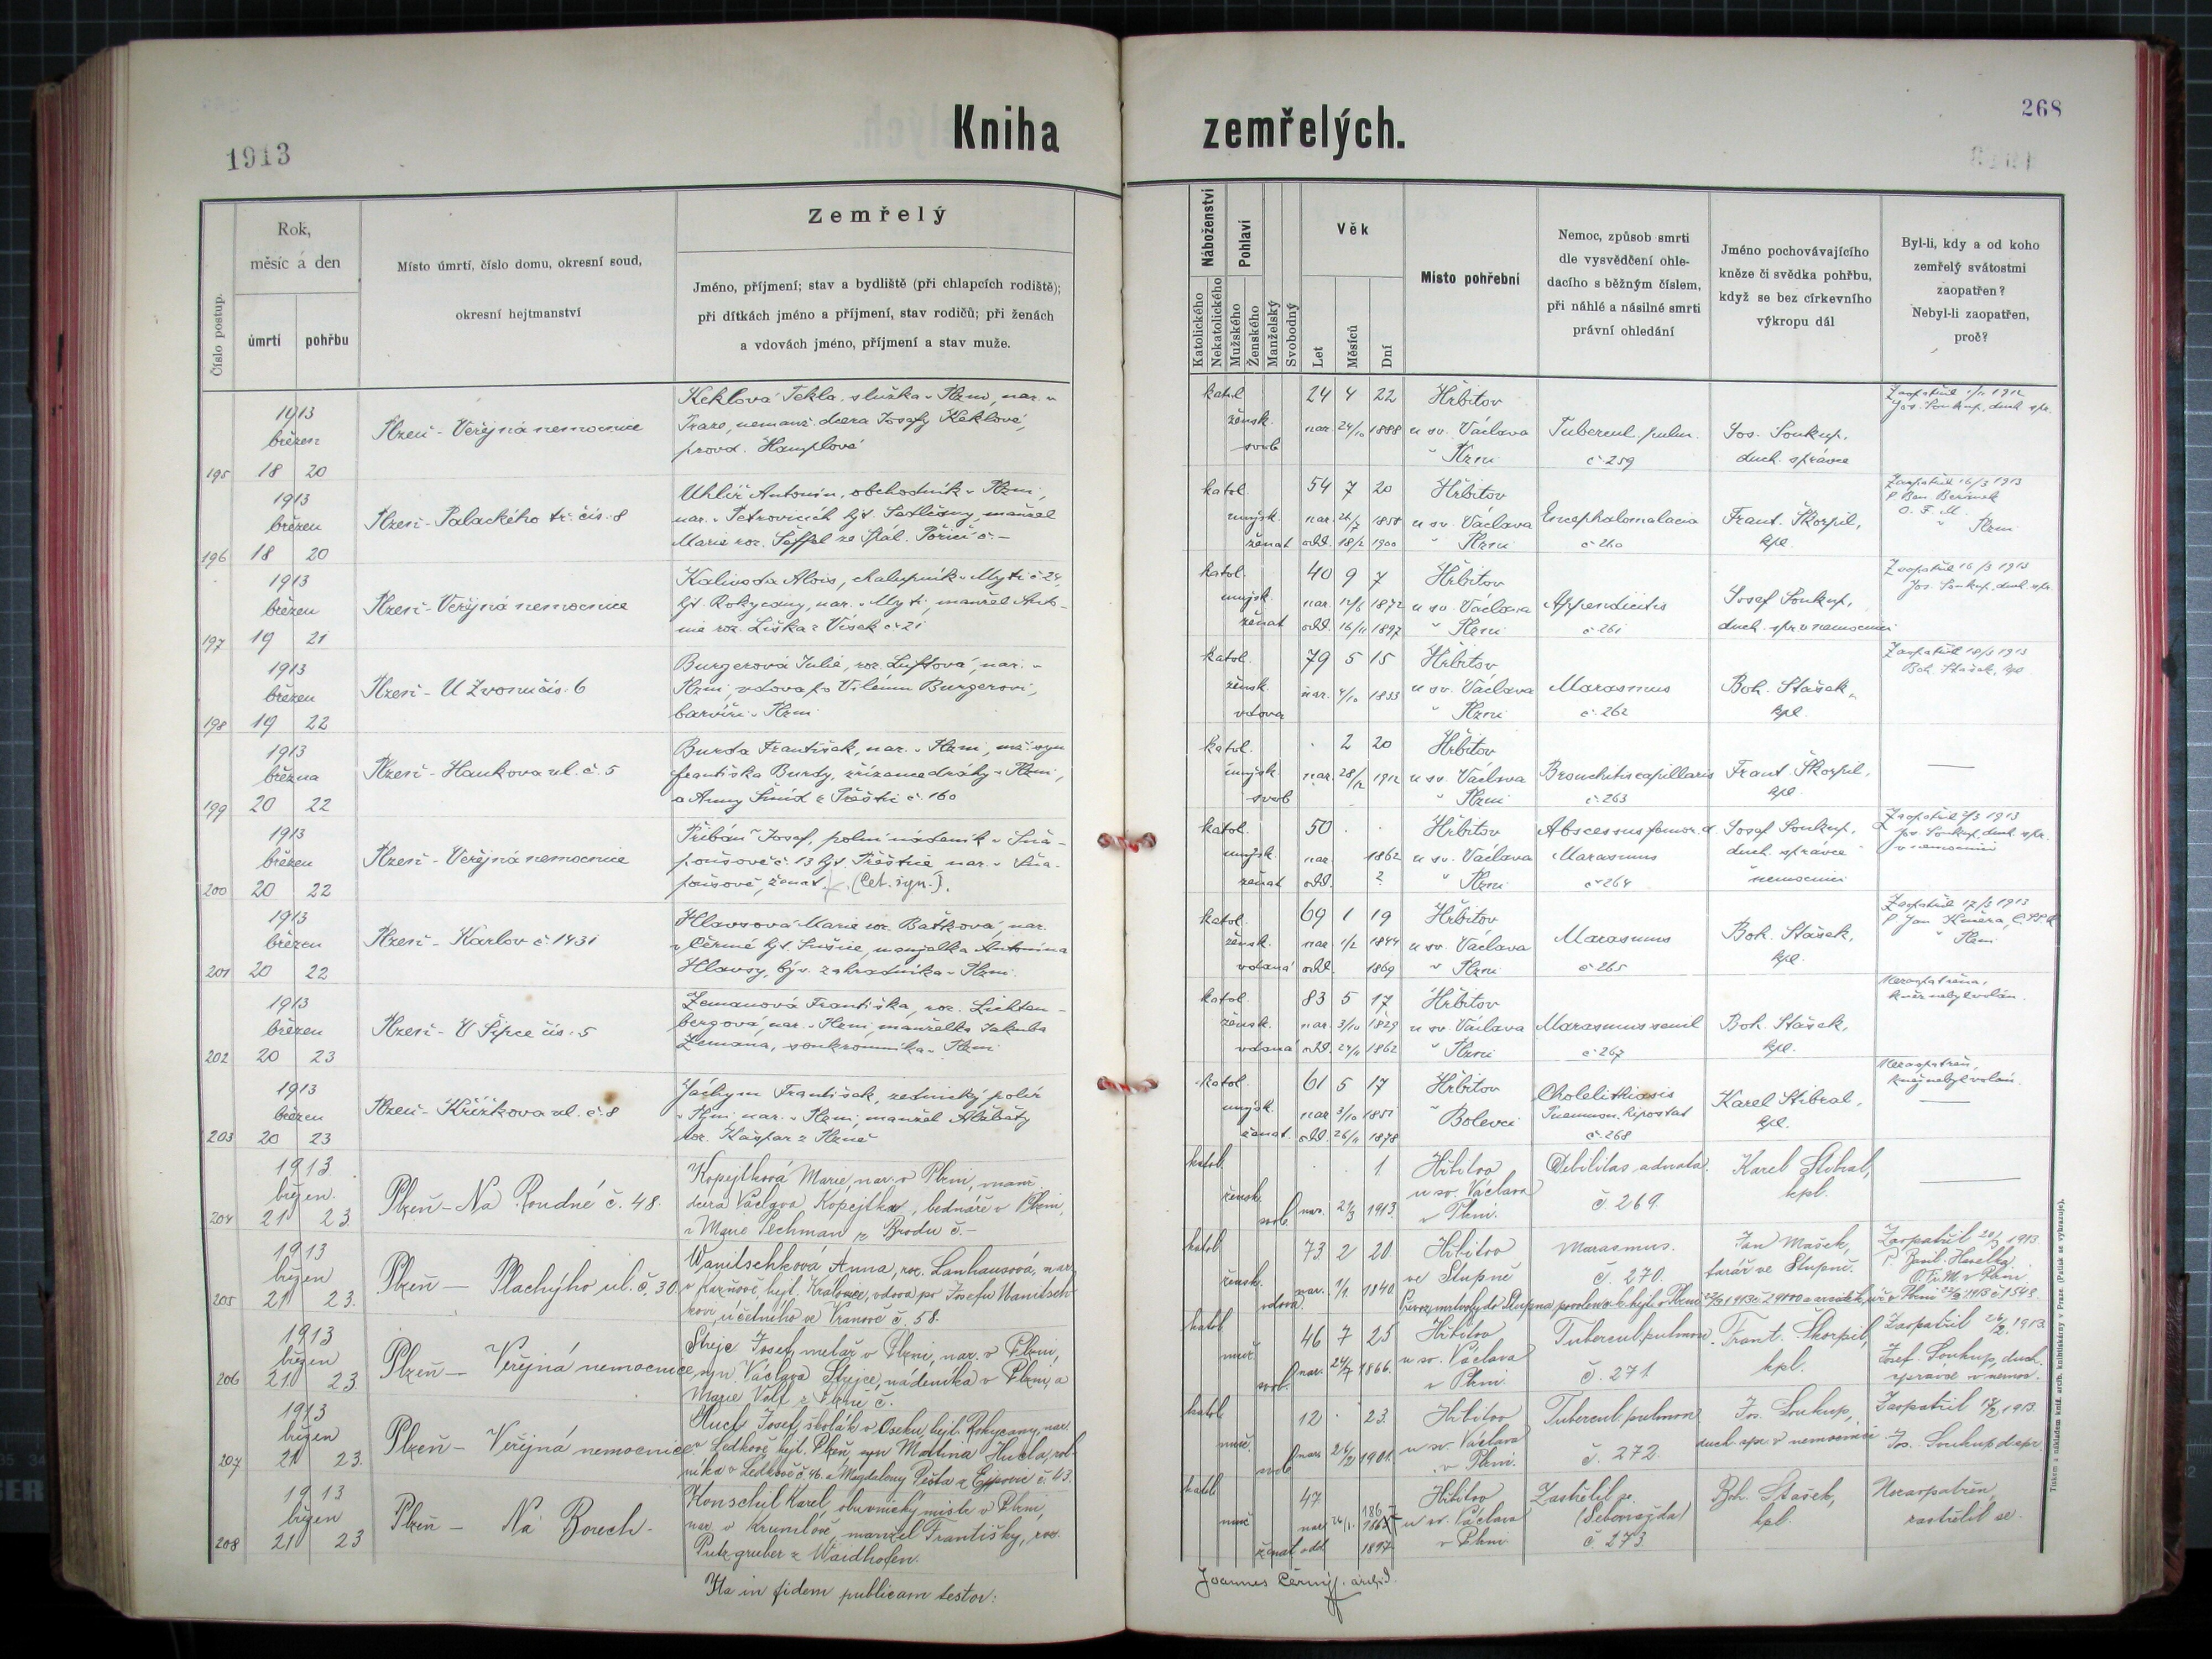 1913
Kniha zemřelých.
268
Číslo postup.
Rok,
měsíc a den
úmrtí
pohřbu
Místo úmrtí, číslo domu, okresní soud,
okresní hejtmanství
Zemřelý
Jméno, příjmení; stav a bydliště (při chlapcích rodiště);
při dítkách jméno a příjmení, stav rodičů; při ženách
a vdovách jméno, příjmení a stav muže.
Náboženství
Katolického
Nekatolického
Pohlaví
Mužského
Ženského
Manželský
Svobodný
Věk
Let
Měsíců
Dní
Místo pohřební
Nemoc, způsob smrti
dle vysvědčení ohle-
dacího s běžným číslem,
při náhlé a násilné smrti
právní ohledání
Jméno pochovávajícího
kněze či svědka pohřbu,
když se bez církevního
výkropu dál
Byl-li, kdy a od koho
zemřelý svátostmi
zaopatřen?
Nebyl-li zaopatřen,
proč?
195
1913
březen
18 20
Plzeň - Veřejná nemocnice
Keklová Tekla, služka v Plzni, nar. v
Praze, nemanž. dcera Josefy Keklové,
provd. Hamplové
katol.
žensk.
svob
24 4 22
nar. 24/10 1888
Hřbitov
u sv. Václava
v Plzni
Tubercul. pulm.
č 259
Jos. Soukup,
duch. správce
Jos. Soukup, duch. spr.
196
1913
březen
18 20
Plzeň - Palackého tř. čís. 8
Uhlíř Antonín, obchodník v Plzni,
nar. v Petrovicích hjt. Sedlčany, manžel
Marie roz.
katol.
mužsk.
ženat
54 7 20
odd. 18/2 1900
Hřbitov
u sv. Václava
v Plzni
Encephalomalacia
č 260
Frant. Škorpil,
kpl.
Zaopatřil 16/3 1913
O. F. M.
v Plzni
197
1913
březen
19 21
Plzeň - Veřejná nemocnice
Kalivoda Alois, chalupník v Mýtě č 24,
hjt. Rokycany, nar. v Mýtě, manžel Anto-
nie roz. Liška z Vísek č 21
katol.
mužsk.
ženat
40 9 7
nar. 12/6 1872
odd. 16/11 1897
Hřbitov
u sv. Václava
v Plzni
Appendicitis
č 261
Josef Soukup,
duch. spr. v nemocnici
Zaopatřil 16/3 1913
Jos. Soukup, duch. spr.
198
1913
březen
19 22
Plzeň - U Zvonu čís. 6
Burgerová Julie, roz. Luftová, nar. v
Plzni, vdova po Vilému Burgerovi,
barvíři v Plzni
katol.
žensk.
vdova
79 5 15
nar. 4/10 1833
Hřbitov
u sv. Václava
v Plzni
Marasmus
č 262
Boh. Stašek,
kpl.
Zaopatřil 18/3 1913
Boh. Stašek, kpl
199
1913
března
20 22
Plzeň - Hankova ul. č. 5
Burda František, nar. v Plzni, mž. syn
Františka Burdy, zřízence dráhy v Plzni,
a Anny Šmíd z Přeštic č. 160
katol.
mužsk
svob
2 20
nar. 28/12 1912
Hřbitov
u sv. Václava
v Plzni
Bronchitis capillaris
č 263
Frant. Škorpil,
kpl.
200
1913
březen
20 22
Plzeň - Veřejná nemocnice
Pribáň Josef, polní nádeník v Sně-
poušově č. 13 hjt. Přeštice nar. v Sně-
poušově, ženat. (Cet. ign.).
katol.
mužsk.
ženat
50
nar. 1862
odd. ?
Hřbitov
u sv. Václava
v Plzni
Abscessus femor. d
Marasmus
č 264
Josef Soukup,
duch. správce
nemocnici
Jos. Soukup, duch. spr.
v nemocnici
201
1913
březen
20 22
Plzeň - Karlov č 1431
Hlavsová Marie roz. Baťková, nar.
v Čermé hjt. Sušice, manželka Antonína
Hlavsy, býv. zahradníka v Plzni.
katol.
žensk.
vdaná
69 1 19
nar 1/2 1844
odd. 1869
Hřbitov
u sv. Václava
v Plzni
Marasmus
č 265
Boh. Stašek,
kpl.
Zaopatřil 17/3 1913
v Plzni
202
1913
březen
20 23
Plzeň - V Šipce čís. 5
Zemanová Františka, roz. Lichten-
bergová, nar. v Plzni, manželka Jakuba
Zemana, soukromníka v Plzni
katol.
žensk.
vdaná
83 5 17
nar. 3/10 1829
odd. 24/11 1862
Hřbitov
u sv. Václava
v Plzni
Marasmus senil
č 267
Boh. Stašek,
kpl.
Nezaopatřena,
kněz nebyl volán.
203
1913
březen
20 23
Plzeň - Křižkova ul. č. 8
Jáchym František, zednický polír
v Plzni, nar. v Plzni, manžel Alžběty
roz. Kašpar z Plzně
katol.
mužsk.
ženat.
61 5 17
nar 3/10 1851
odd. 26/11 1878
Hřbitov
v Bolevci
Cholelithiasis
Pneumon. hipostat
č. 268
Karel Stibral,
kpl.
Nezaopatřen,
kněz nebyl volán.
204
1913
březen.
21 23
Plzeň - Na Roudné č. 48.
Kopejtková Marie, nar. v Plzni, manž.
dcera Václava Kopejtka, bednáře v Plzni,
a Marie Pechman z Brodu č. -
katol
žensk.
svob.
1
nar. 21/3 1913.
Hřbitov
u sv. Václava
v Plzni.
Debilitas adnata.
č. 269.
Karel Stibral,
kpl.
205
1913
březen
21 23.
Plzeň - Plachýho ul. č. 30.
Wanitschková Anna, roz. Lanhausová, nar.
v Kaznově, hejt. Kralovice, vdova po Josefu Wanitsch-
kovi, účetního ve Vranově č. 58.
katol
žensk.
vdova.
73 2 20
nar. 1/1 1840
Hřbitov
ve Stupně
Marasmus.
č. 270.
Jan Mašek,
farář ve Stupně.
Zaopatřil 20/3 1913
O. Fr. M. v Plzni
206
1913
březen
21 23.
Plzeň - Veřejná nemocnice
Strejc Josef, metař v Plzni, nar. v Plzni,
syn Václava Strejce, nádeníka v Plzni, a
Marie Volf z Plzně č.
katol
muž.
svob.
46 7 25
nar. 24/7 1866.
Hřbitov
u sv. Václava
v Plzni.
Tubercul. pulmon.
č. 271
Frant. Škorpil,
kpl.
Zaopatřil 26/2 1913.
Josef. Soukup, duch.
správce v nemoc.
207
1913
březen
21 23.
Plzeň - Veřejná nemocnice
Hucl Josef, školák v Oseku, hejt. Rokycany, nar.
v Ledkově, hejt. Plzeň, syn Martina Hucla, rol-
níka v Ledkově č. 46. a Magdaleny Pešta z Ejpovic č. 43.
katol
muž.
svob
12 23.
nar. 26/2 1901.
Hřbitov
u sv. Václava
v Plzni.
Tubercul. pulmon.
č. 272.
Jos. Soukup,
duch. spr. v nemocnici
Zaopatřil 18/2 1913.
Jos. Soukup d. spr.
208
1913
březen
21 23
Plzeň - Na Borech.
Konschil Karel, obuvnický mistr v Plzni,
nar. v Krumlově, manžel Františky, roz.
Putzgruber z Waidhofen.
katol
muž
ženat
47
nar 26/1.
odd 1897
Hřbitov
u sv. Václava
v Plzni
Zastřelil se.
(Sebevražda)
č 273.
Boh. Stašek,
kpl.
Nezaopatřen,
zastřelil se.
Ita in fidem publicam testor:
Joannes Černý, archid.